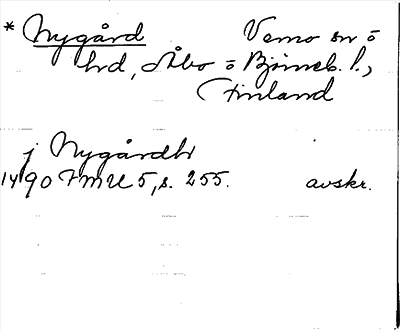 * Nygård Vemo sn ö
hrd, Åbo ö Bjørneb. l.,
Finland
j Nygårdhr
1490 FMU 5, s. 255. avskr.